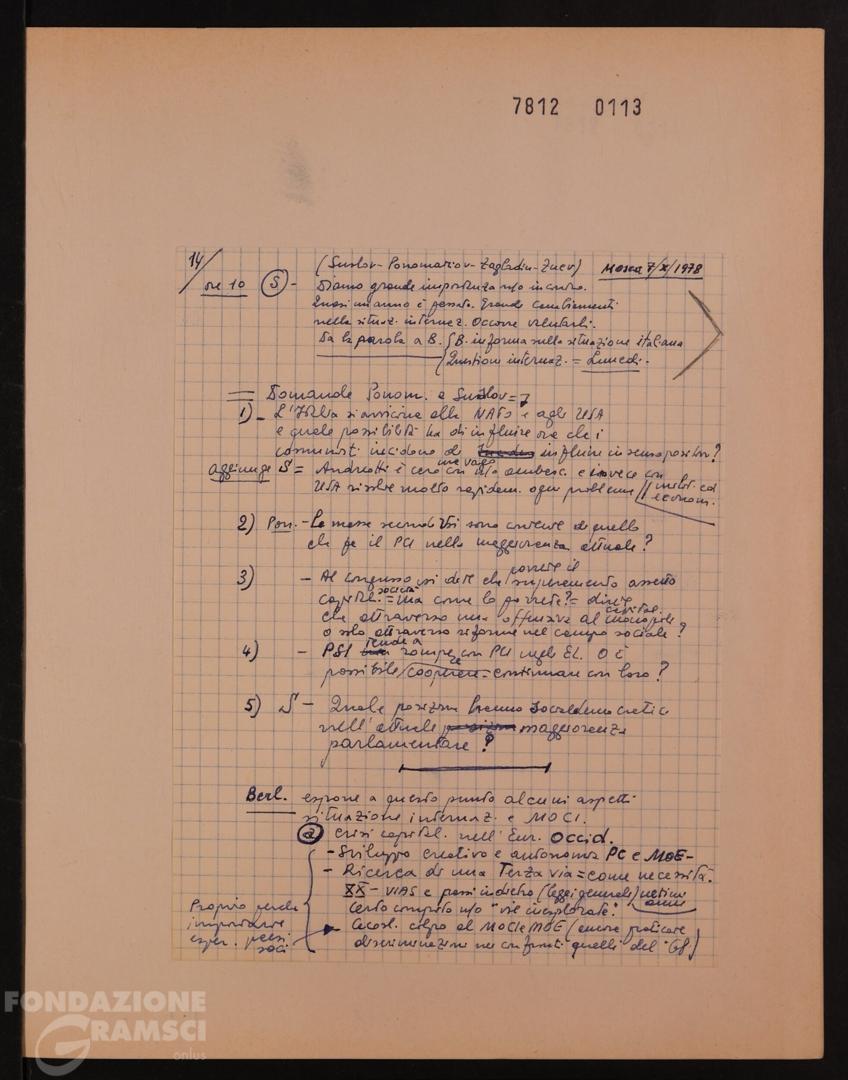 7812 0113
14/
(Suslov - Ponomariov - Zagladin - Zuev) Mosca 7/X/1978
ore 10 (S) - Diamo grande importanza n/o incontro.
Quasi un anno è passato. Grandi cambiamenti
nella situaz. internaz. Occorre valutarli.
Dà la parola a B. { B. informa sulla situazione italiana
Questioni internaz. = Lunedì.
Domande Ponom. e Suslov =
1) - L'Italia si avvicina alla NATO e agli USA
e quale possibilità ha di influire ora che i
comunisti incidono di influire in senso positivo?
aggiunge S = Andreotti è c/o ambasc. e invece con
USA risolve molto rapidam. ogni problema // milit. ed
econom.
2) Pon. - Le masse secondo Voi sono contente di quello
che fa il PCI nella maggioranza attuale?
3) - Al Congresso voi dite che il superamento assetto
capital. società = ma come lo = dite
che attraverso una offensiva al capital. monopol.
o solo attraverso riforme nel campo sociale?
4) - PSI tende a rompere con PCI negli EL. O è
possibile cooperare = continuare con loro?
5) S - Quale posizione hanno Socialdemocratici
nell'attuale maggioranza
parlamentare?
Berl. espone a questo punto alcuni aspetti
situazione internaz. e MOCI.
(a) crisi capital. nell'Eur. Occid.
- Sviluppo creativo e autonomia PC e MOE -
- Ricerca di una Terza via = come necessità.
XX - VIAS e passi indietro (leggi generali) ultimi
anni
Certo compito n/o "vie inesplorate".
Proprio perché
importante
esper. paesi
soci
Cecosl. colpo al MOCI e MOE (ancora praticare
discriminazioni nei confronti quelli del '68)
FONDAZIONE
GRAMSCI
onlus